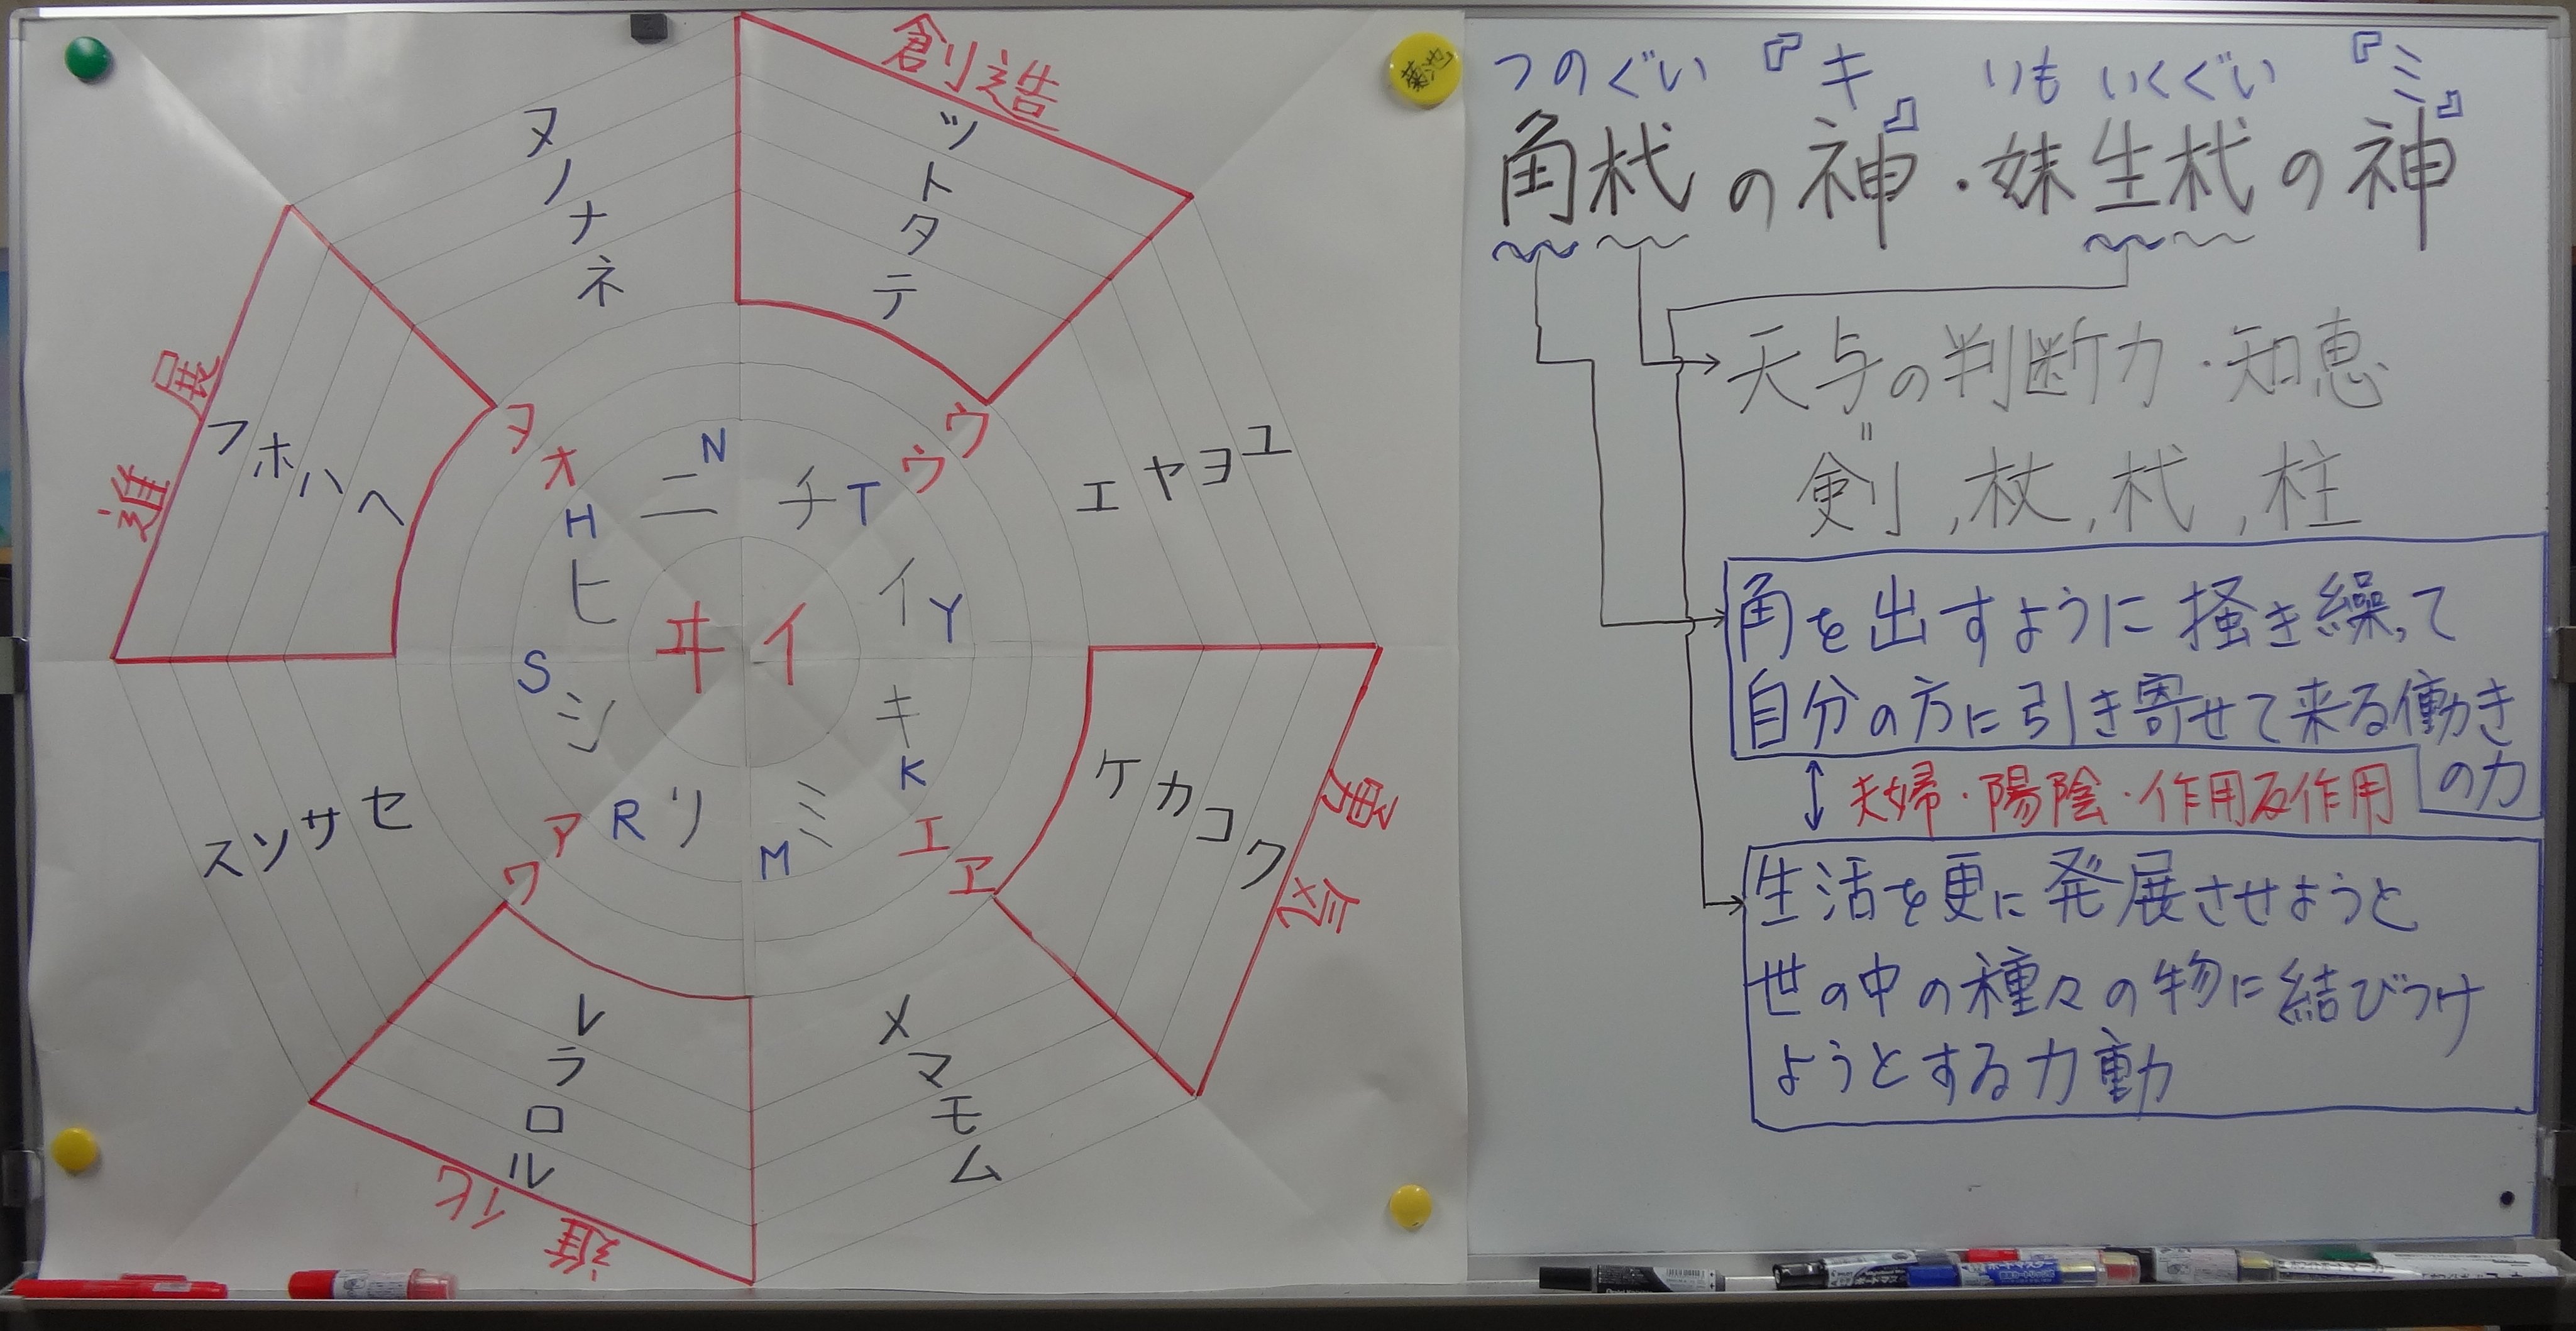 創造
ツ
ト
タ
テ
ヌ
ノ
ナ
ネ
進展
フホハヘ
エヤヨユ
ヲ
オ
ウ
ウ
N
ニ
チT
H
ヒ
イY
ヰ イ
S
シ
キ
K
ケカコク
勇気
スソサセ
ア
ワ
Rリ
ミ
M
エ
ヱ
レ
ラ
ロ
ル
進化
メ
マ
モ
ム
菊池
つのぐい 『キ』 いもいくぐい 『ミ』
角杙の神・妹生杙の神
天与の判断力・知恵
〃
剣,杖,杙,柱
角を出すように掻き繰って
自分の方に引き寄せて来る働き
の力
夫婦・陽陰・作用反作用
生活を更に発展させようと
世の中の種々の物に結びつけ
ようとする力動